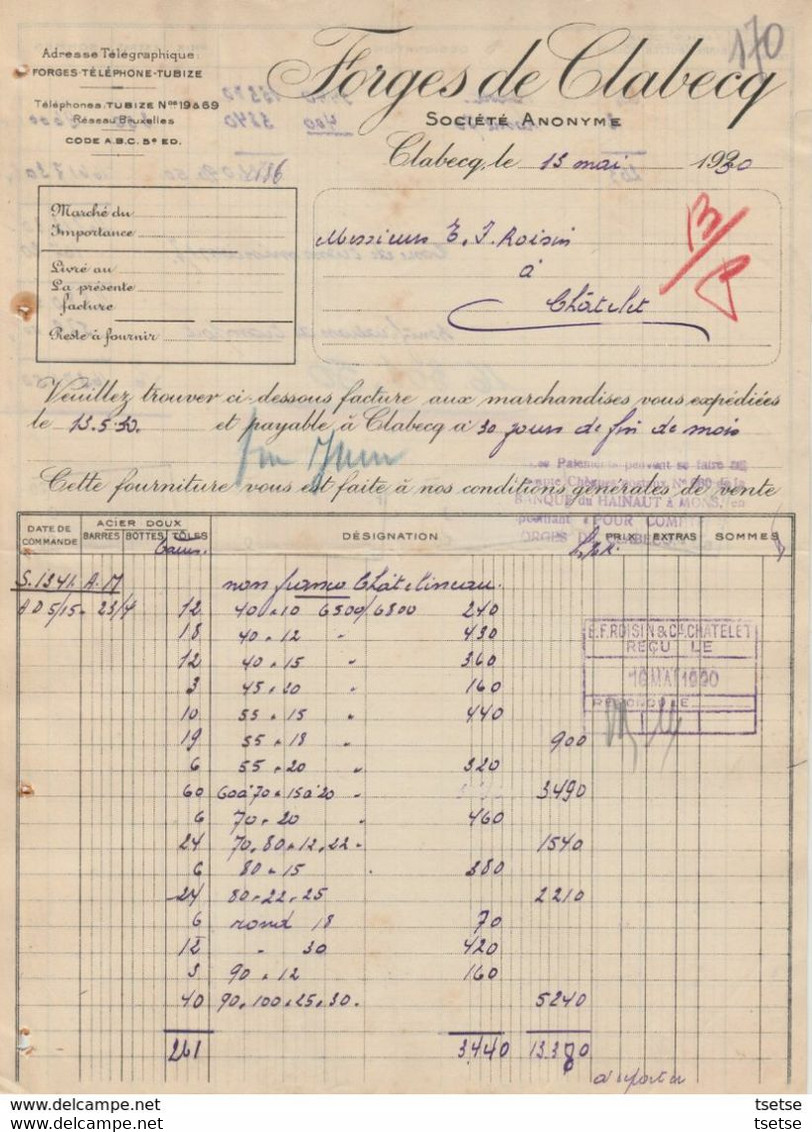 170
Adresse Télégraphique:
FORGES-TÉLÉPHONE-TUBIZE
Téléphones. TUBIZE Nos 19 & 69
Réseau Bruxelles
CODE A.B.C. 5e ED.
Forges de Clabecq
SOCIÉTÉ ANONYME
Clabecq, le 13 mai 1930
Marché du
Importance
Livré au
La présente
facture
Reste à fournir
Messieurs E. F. Roisin
à
Châtelet
Veuillez trouver ci-dessous facture aux marchandises vous expédiées
le 13.5.30. et payable à Clabecq à 30 jours de fin de mois
fin Juin
Cette fourniture vous est faite à nos conditions générales de vente
Les Paiements peuvent se faire
BANQUE du HAINAUT à MONS, en
POUR COMPTE
DATE DE COMMANDE ACIER DOUX BARRES BOTTES TÔLES DÉSIGNATION PRIX EXTRAS SOMMES
Barres.
S. 1341. A. M non franco Châtelineau.
A D 5/15 - 23/4 12 40 . 10 6500/6800 240
18 40 . 12 " 430
12 40 . 15 " 360
3 45 . 20 " 160
10 55 . 15 " 440
19 55 . 18 " 900
6 55 . 20 " 320
60 60 à 70 . 15 à 20 " 3490
6 70 . 20 " 460
24 70. 80 . 12. 22 " 1540
6 80 . 15 " 380
24 80 . 22 . 25 2210
6 rond 18 70
12 " 30 420
3 90 . 12 160
40 90. 100 . 25. 30. 5240
261 3440 13.380
à reporter
E.F. ROISIN & Cie. CHATELET
REÇU LE
16 MAI 1930
REPONDU LE
tsetse
tsetse